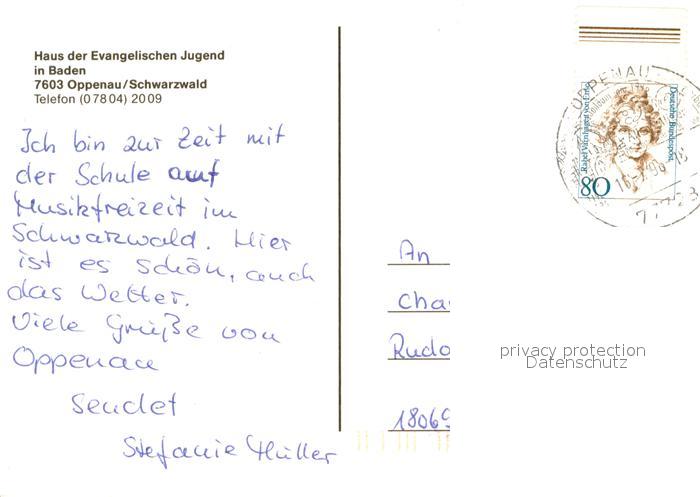 Haus der Evangelischen Jugend
in Baden
7603 Oppenau/Schwarzwald
Telefon (07804) 2009
Ich bin zur Zeit mit
der Schule auf
Musikfreizeit im
Schwarzwald. Hier
ist es schön, auch
das Wetter.
Viele Grüße von
Oppenau
sendet
Stefanie Müller
OPPENAU
Deutsche Bundespost
Rahel Varnhagen von Ense
80
77728
An
Cha
Rudo
18069
privacy protection
Datenschutz